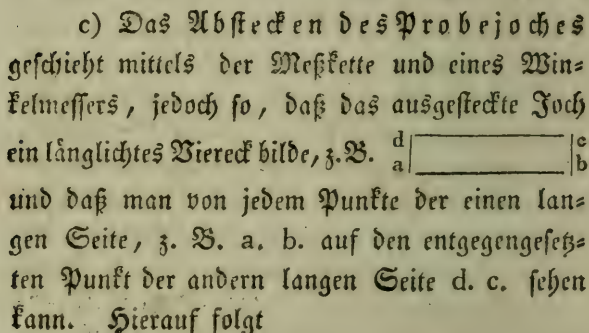 c) Das Abstecken des Probejoches
geschieht mittels der Meßkette und eines Win=
kelmessers, jedoch so, daß das ausgesteckte Joch
ein länglichtes Viereck bilde, z. B. d c
a b
und daß man von jedem Punkte der einen lan=
gen Seite, z. B. a. b. auf den entgegengesetz=
ten Punkt der andern langen Seite d. c. sehen
kann. Hierauf folgt